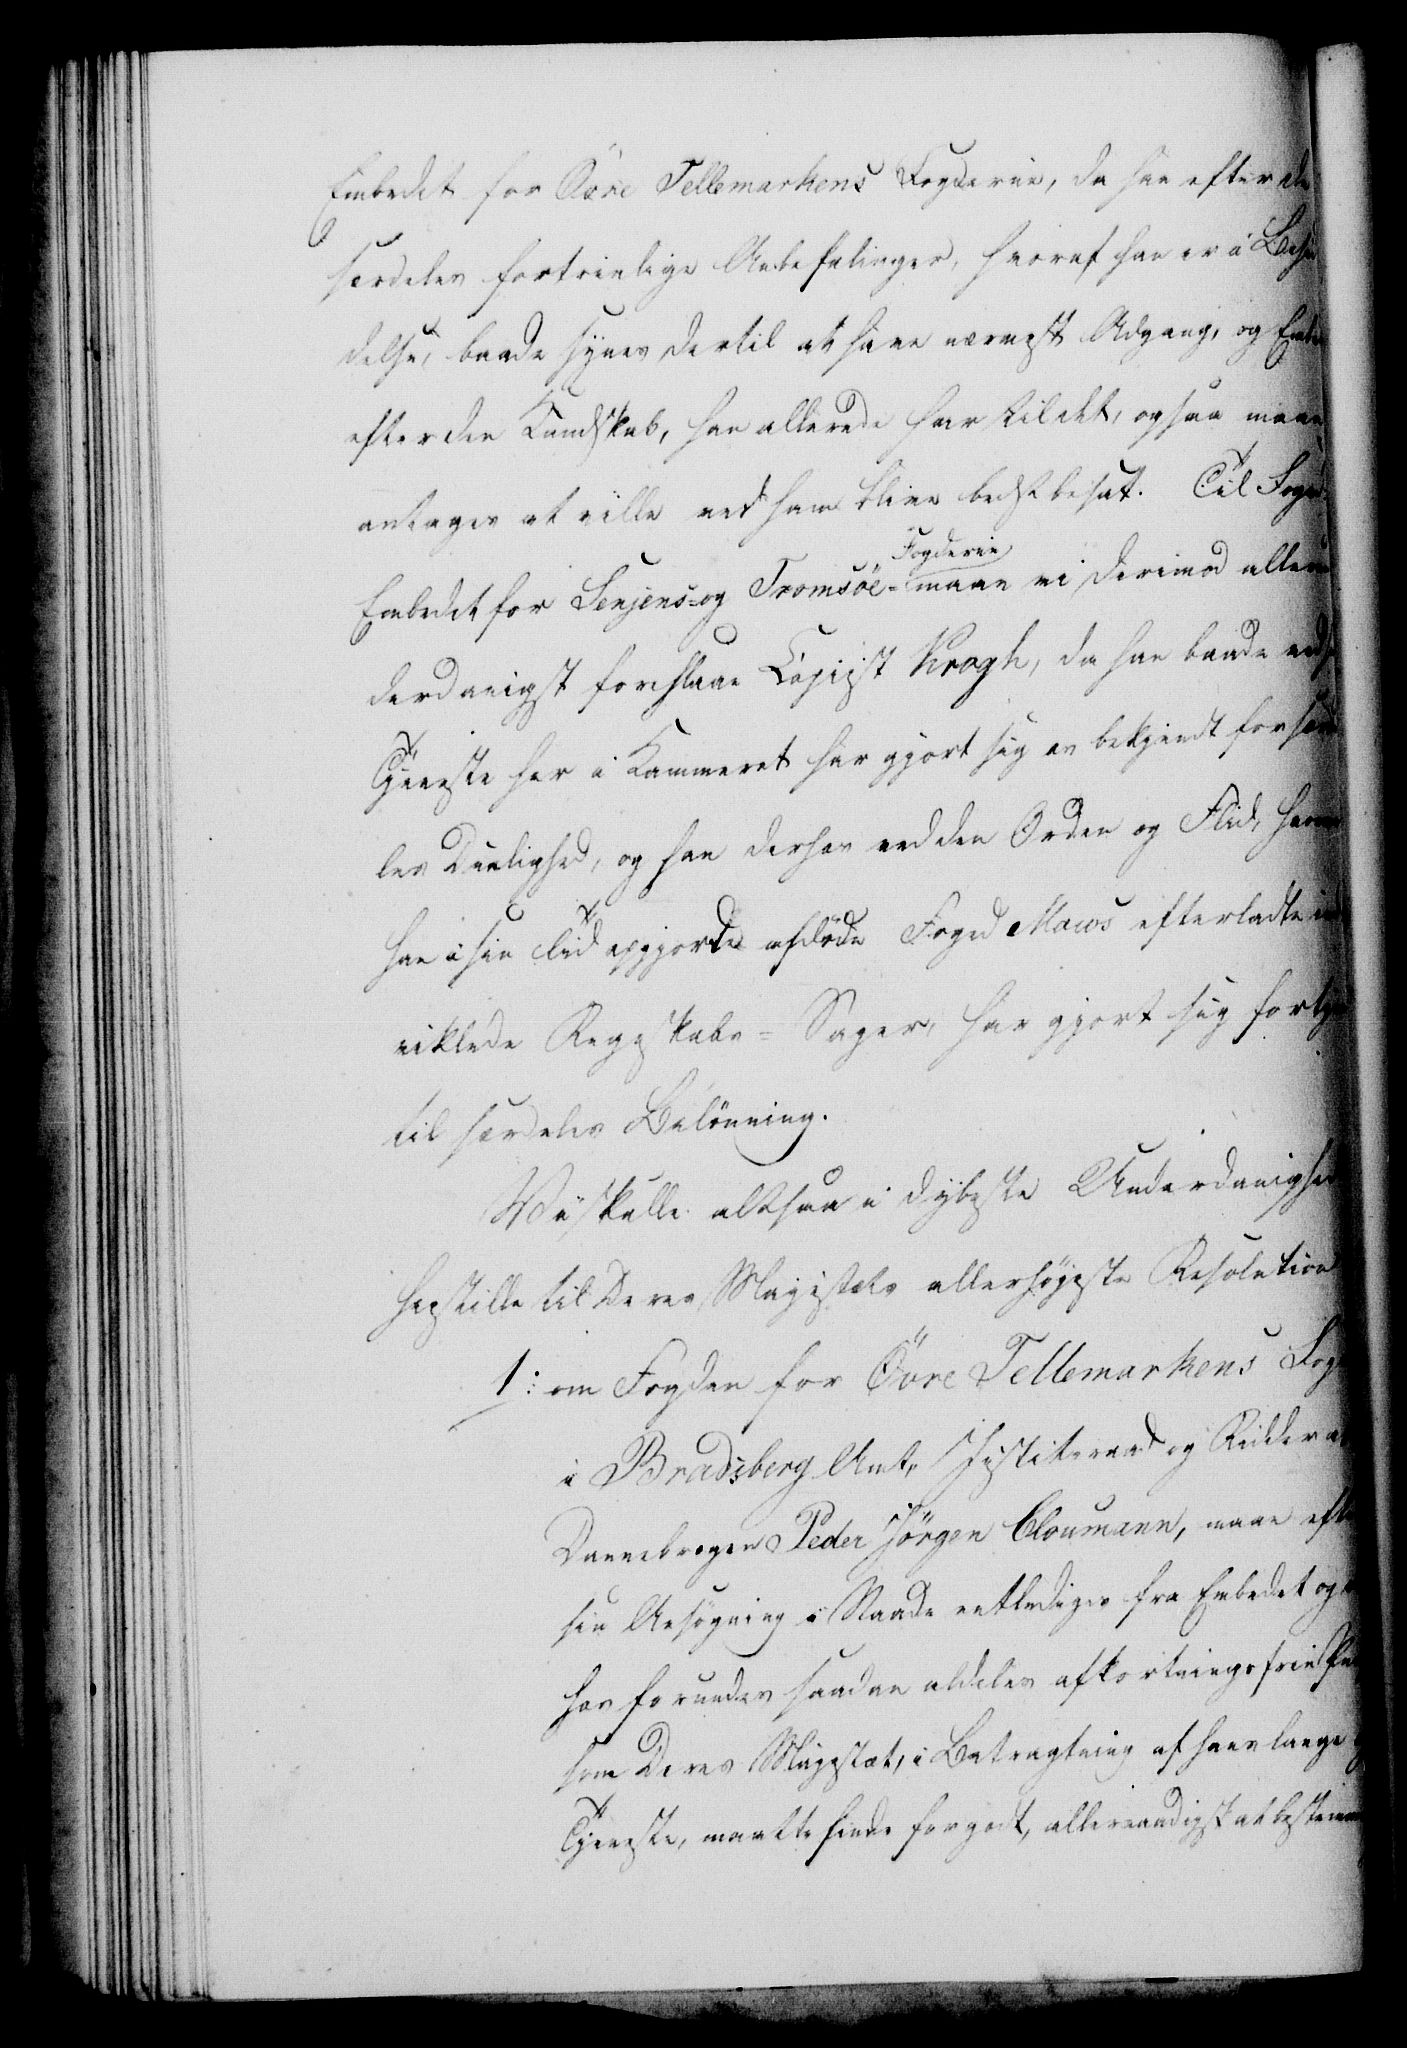 Embedet for Övre Tellemarkens Fogderie, da han efter de
særdeles fortrinlige Anbefalinger, hvoraf han er i Besid
delse, baade synes dertil at have nærmest Adgang, og Embe
efter den Kundskab, han allerede har til det, ogsaa maae
antages at ville ved ham blive bedst besat. Til Foged
Embedet for Senjens- og Tromsöe- Fogderie maae vi derimod alleru
derdanigst foreslaae Copiist Krogh, da han baade ved s
Tjeneste her i Kammeret har gjort sig os bekjendt for særde
les Duelighed, og han derhos ved den Orden og Flid, hvorm
han i sin Tid opgjorde afdøde Foged Maws efterladte ind
viklede Regnskabs-Sager, har gjort sig fortje
til særdeles Belönning.
Vi skulle altsaa i dybeste Underdanighed
henstille til Deres Majestæts allerhøyeste Resolution
1: om Fogden for Övre Tellemarkens Fog
i Bradsberg Amt, Justitsraad og Ridder af
Dannebrogen Peder Jörgen Cloumann, maae efter
sin Ansøgning i Naade entlediges fra Embedet og
hos forundes saadan aldeles afkortningsfrie Pen
som Deres Majestæt, i Betragtning af hans lange
Tjeneste, maatte finde for godt, allernaadigst at bestemme